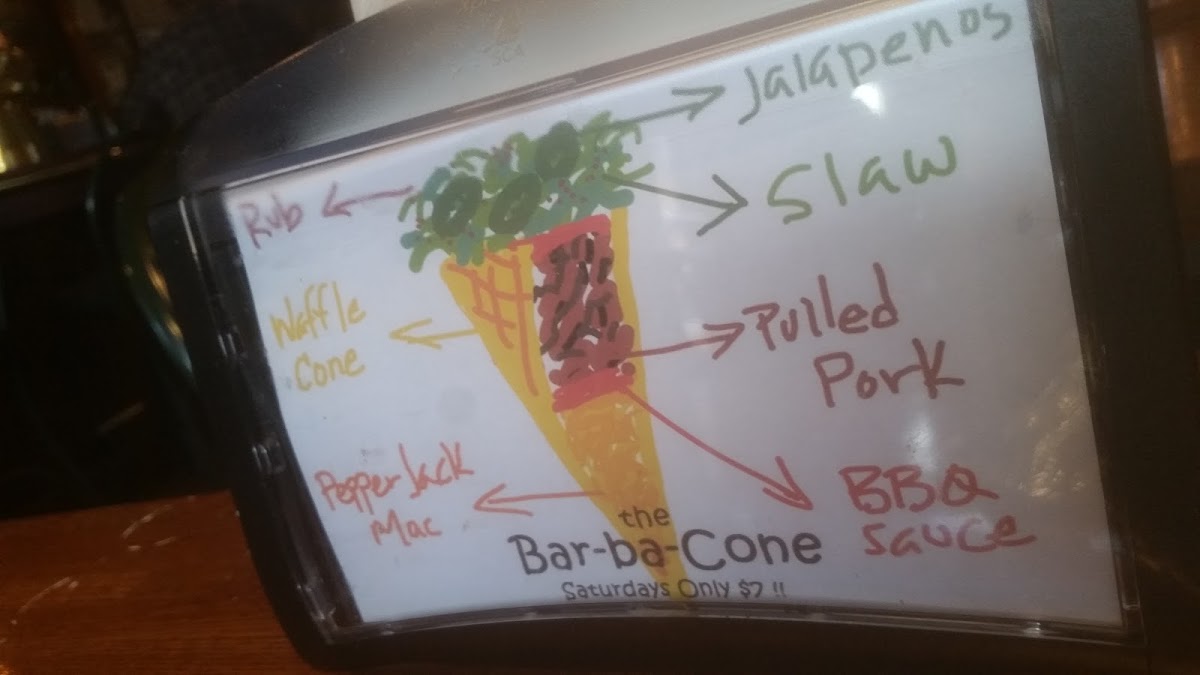 Jalapenos
Rub
Slaw
Waffle
Cone
Pulled
Pork
Pepper Jack
Mac
BBQ
Sauce
the
Bar-ba-Cone
Saturdays Only $7 !!